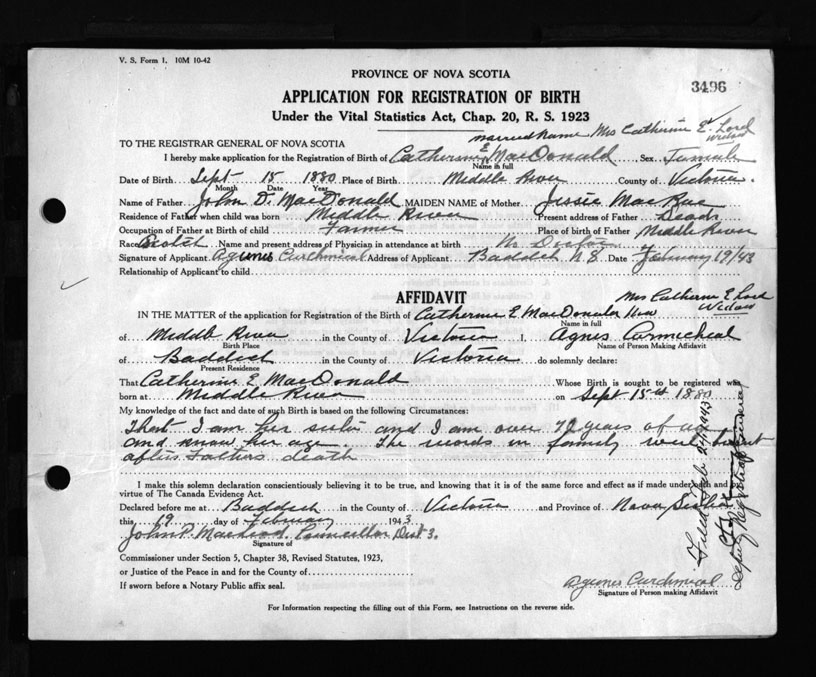 V. S. Form 1. 10M 10-42
PROVINCE OF NOVA SCOTIA
3496
APPLICATION FOR REGISTRATION OF BIRTH
Under the Vital Statistics Act, Chap. 20, R. S. 1923
married name Mrs Catherine E. Lord
Widow
TO THE REGISTRAR GENERAL OF NOVA SCOTIA
I hereby make application for the Registration of Birth of Catherine E MacDonald Sex Female
Name in full
Date of Birth Sept 15 1880 Place of Birth Middle River County of Victoria.
Month Date Year
Name of Father John D. MacDonald MAIDEN NAME of Mother Jessie MacRae
Residence of Father when child was born Middle River Present address of Father Dead
Occupation of Father at Birth of child Farmer Place of birth of Father Middle River
Race Scotch Name and present address of Physician in attendance at birth No Doctor
Signature of Applicant Agunes Curchmical Address of Applicant Baddeck N S Date February 19/43
Relationship of Applicant to child
AFFIDAVIT
Mrs Catherine E Lord
Widow
IN THE MATTER of the application for Registration of the Birth of Catherine E MacDonald Now
Name in full
of Middle River in the County of Victoria I, Agnes Carmicheal
Birth Place Name of Person Making Affidavit
of Baddeck in the County of Victoria do solemnly declare:
Present Residence
That Catherine E MacDonald Whose Birth is sought to be registered was
born at Middle River on Sept 15th 1880
My knowledge of the fact and date of such Birth is based on the following Circumstances:
That I am her sister and I am over 72 years of age
and know her age. The records in family were burnt
after Fathers death
I make this solemn declaration conscientiously believing it to be true, and knowing that it is of the same force and effect as if made under oath and
virtue of The Canada Evidence Act.
Declared before me at Baddeck in the County of Victoria and Province of Nova Scotia
this 19 day of February 1943
John P. MacLeod. Councillor Dist 3.
Signature of
Commissioner under Section 5, Chapter 38, Revised Statutes, 1923,
or Justice of the Peace in and for the County of
If sworn before a Notary Public affix seal.
Agunes Curchmical
Signature of Person making Affidavit
For Information respecting the filling out of this Form, see Instructions on the reverse side.
Filed Feb 24 1943
Deputy Registrar General